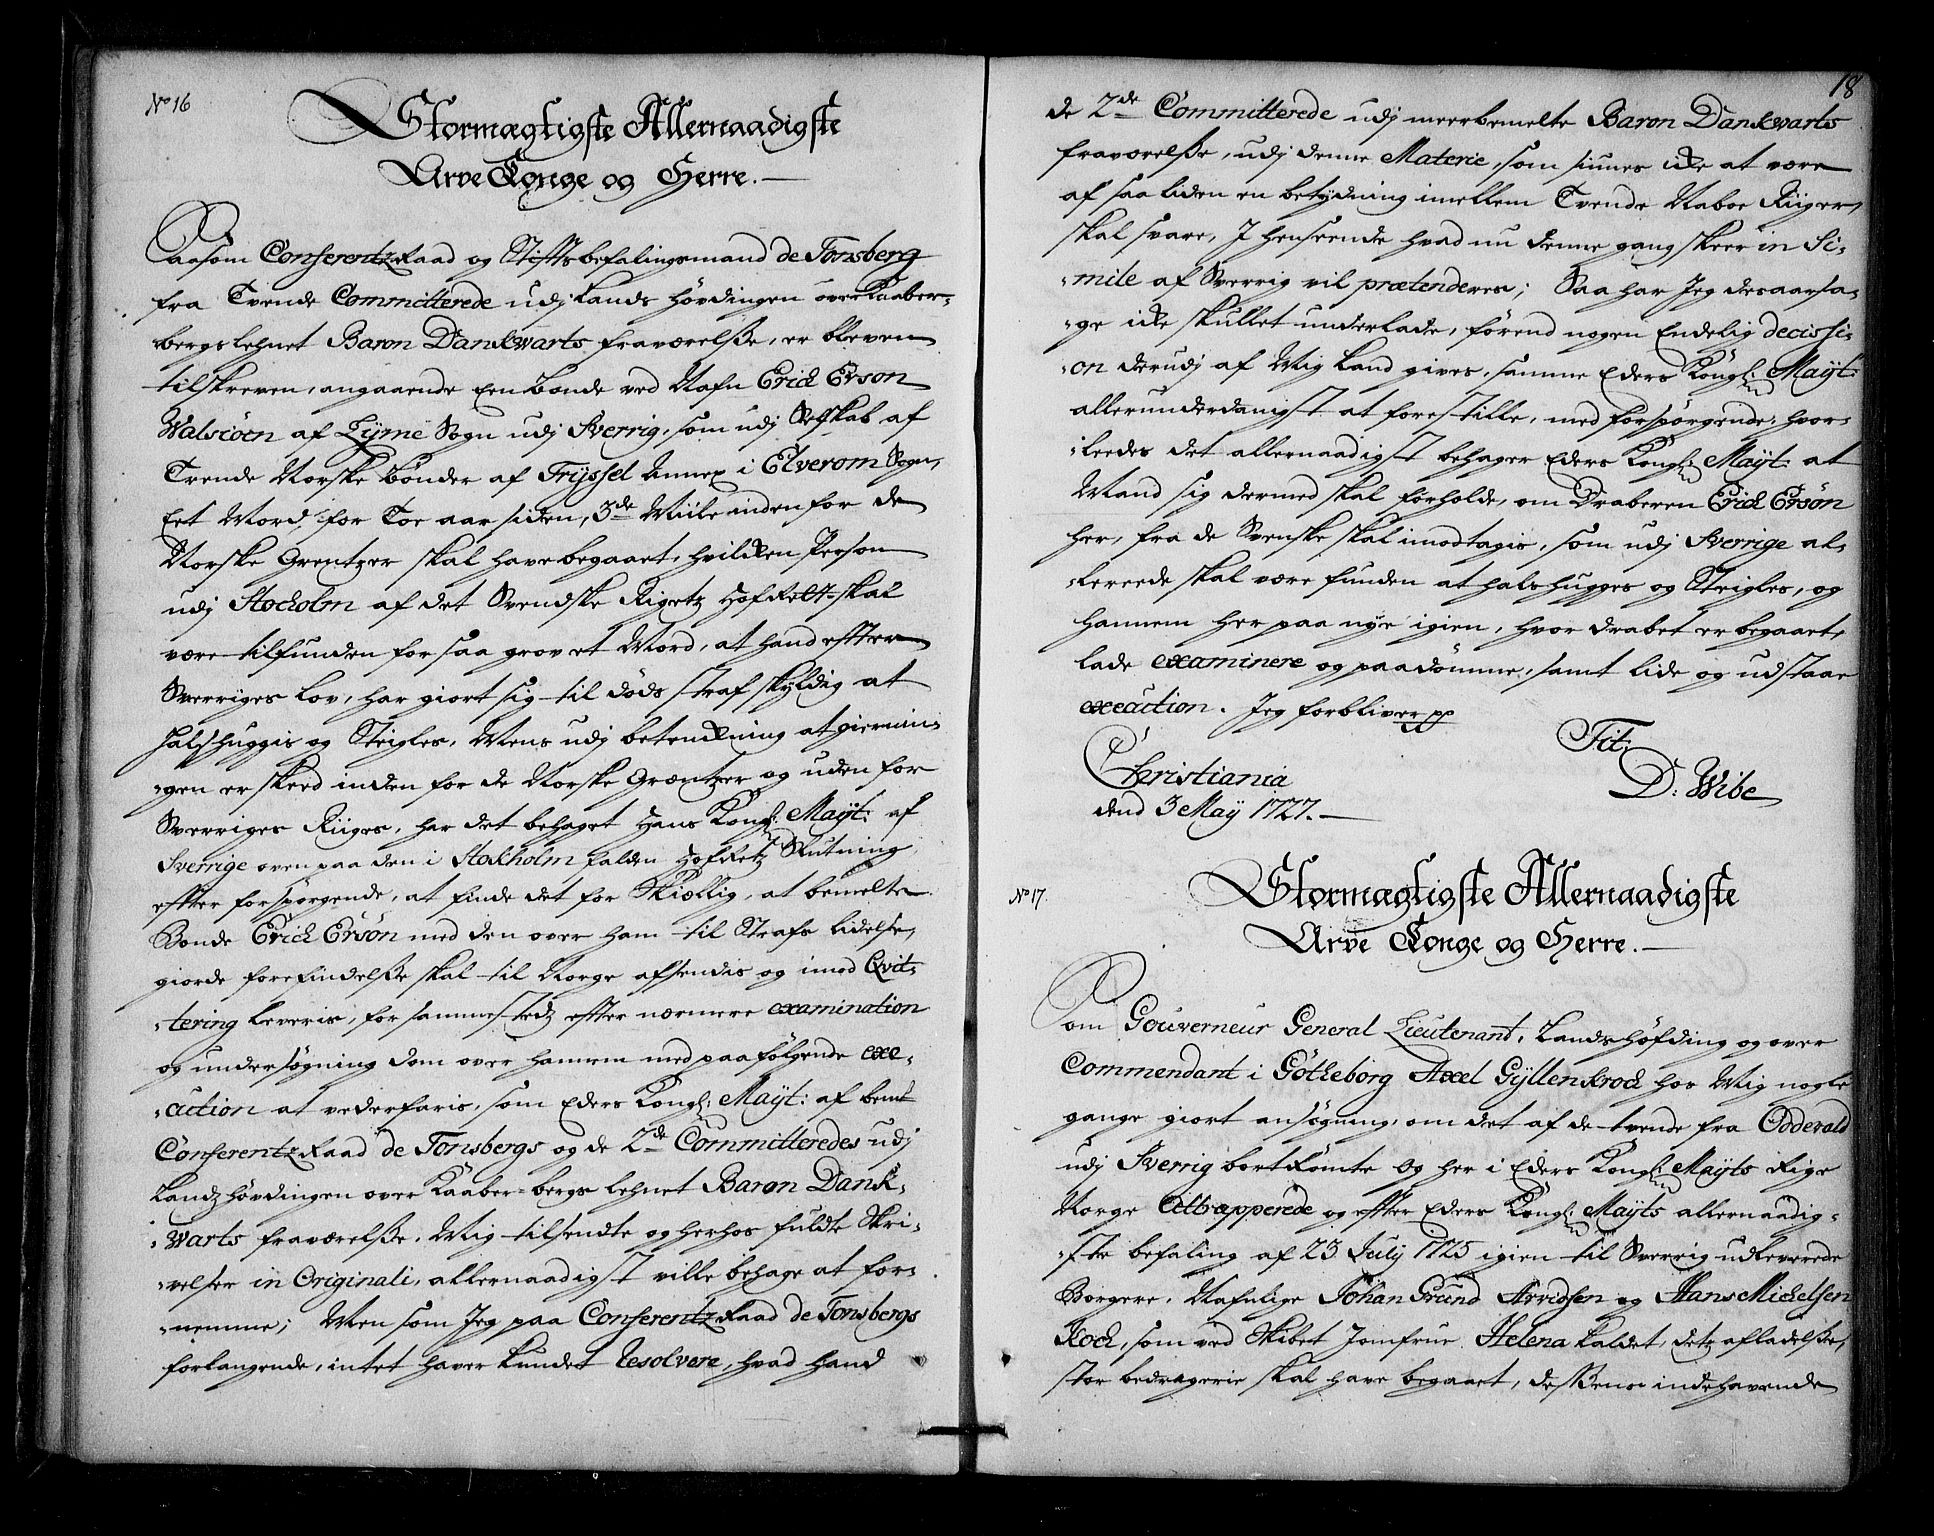 No 16
Stormægtigste Allernaadigste
Arve Konge og Herre.
Saasom ConferentzRaad og Stiftsbefalingsmand de Tonsberg
fra Tvende Committerede udj Lands høvdingen over Kaaber-
bergs lehnet Baron Dankwarts fraværelsse, er bleven
tilskreven, angaaende Een bonde ved Nafn Erick Erson
Walsiöen af Lijme Sogn udj Sverrig, som udj Selskab af
Trende Norske bønder af Trÿssel Annex i Elverom Sogn,
Eet Mord, for Toe aar siden, 3de Miile inden for de
Norske Grentzer skal have begaaet, hvilken Person
udj Stockolm af det Svendske Rigetz HofRett skal
være tilfunden for saa grov et Mord, at hand effter
Sverriges Lov, har giort sig til døds straf skyldig at
halshuggis og Steigles, Mens udj betenkning at giernin-
gen er skeed inden for de Norske Græntzer og uden for
Sverriges Riiges, har det behaget Hans Kongl: Mayt: af
Sverrige oven paa den i Stokholm falden HofRetz Slutning,
effter forspørgende, at finde det for Skiællig, at bemelte
Bonde Erick Ersøn med den over ham til Straf Lidelse,
giorde forefindelsse skal til Norge afsendis og imod Qvit-
tering Leveris, for sammestedz effter nærmere examination
og undersøgning dom over hannem med paafølgende exe-
cution at vederfaris, som Eders Kongl: Mayt: af bemt
ConferentzRaad de Tonsbergs og de 2de Committeredes udj
Landzhøvdingen over Kaaber-bergs lehnet Baron Dank-
warts fraværelsse, Mig tilsendte og herhos fuldte Skri-
velser in Originali, allernaadigst ville behage at for-
nemme; Men som Jeg paa ConferentzRaad de Tonsbergs
forlangende, intet haver kundet Resolvere, hvad hand
18
de 2de Committerede udj meerbemelte Baron Dankwarts
fraværelsse, udj denne Materie, som siunes icke at være
af saa liden en betydning imellem Tvende Naboe Riiger,
skal svare, J henseende hvad nu denne gang skeer in Si-
mile af Sverrig vil prætenderes; Saa har Jeg desaarsa-
ge icke skullet underlade, førend nogen Endelig decissi-
on derudj af Mig kand gives, samme Eders Kongl: Mayt:
allerunderdanigst at forestille, med forspørgende, hvor-
leedes det allernaadigst behager Eders Kongl: Mayt: at
Mand sig dermed skal forholde, om Draberen Erick Ersøn
her, fra de Svenske skal imodtagis, som udj Sverrige al-
lereede skal være funden at halshugges og Steigles, og
hannem her paa nye igien, hvor drabet er begaaet,
lade examinere og paadømme, samt lide og udstaae
execution. Jeg forbliver pp
Christiania
dend 3 May 1727.
Tit:
D: Wibe
No 17.
Stormægtigste Allernaadigste
Arve Konge og Herre.
Som Gouverneur General Lieutenant, Landshøfding og over
Commendant i Götheborg Axel Gÿllenkrock hos Mig nogle
gange giort ansøgning, om det af de tvende fra Oddevald
udj Sverrig bortRømte og her i Eders Kongl: Mayts Rige
Norge Attrapperede og effter Eders Kongl: Mayts allernaadig-
ste befaling af 23 July 1725 igien til Sverrig udleverede
Borgere, Nafnlige Johan Grund Arvidsen og Hans Michelsen
Kock, som ved Skibet Jomfrue Helena kaldet, detz afladelsse,
stor bedragerie skal have begaaet, dessens indehavende